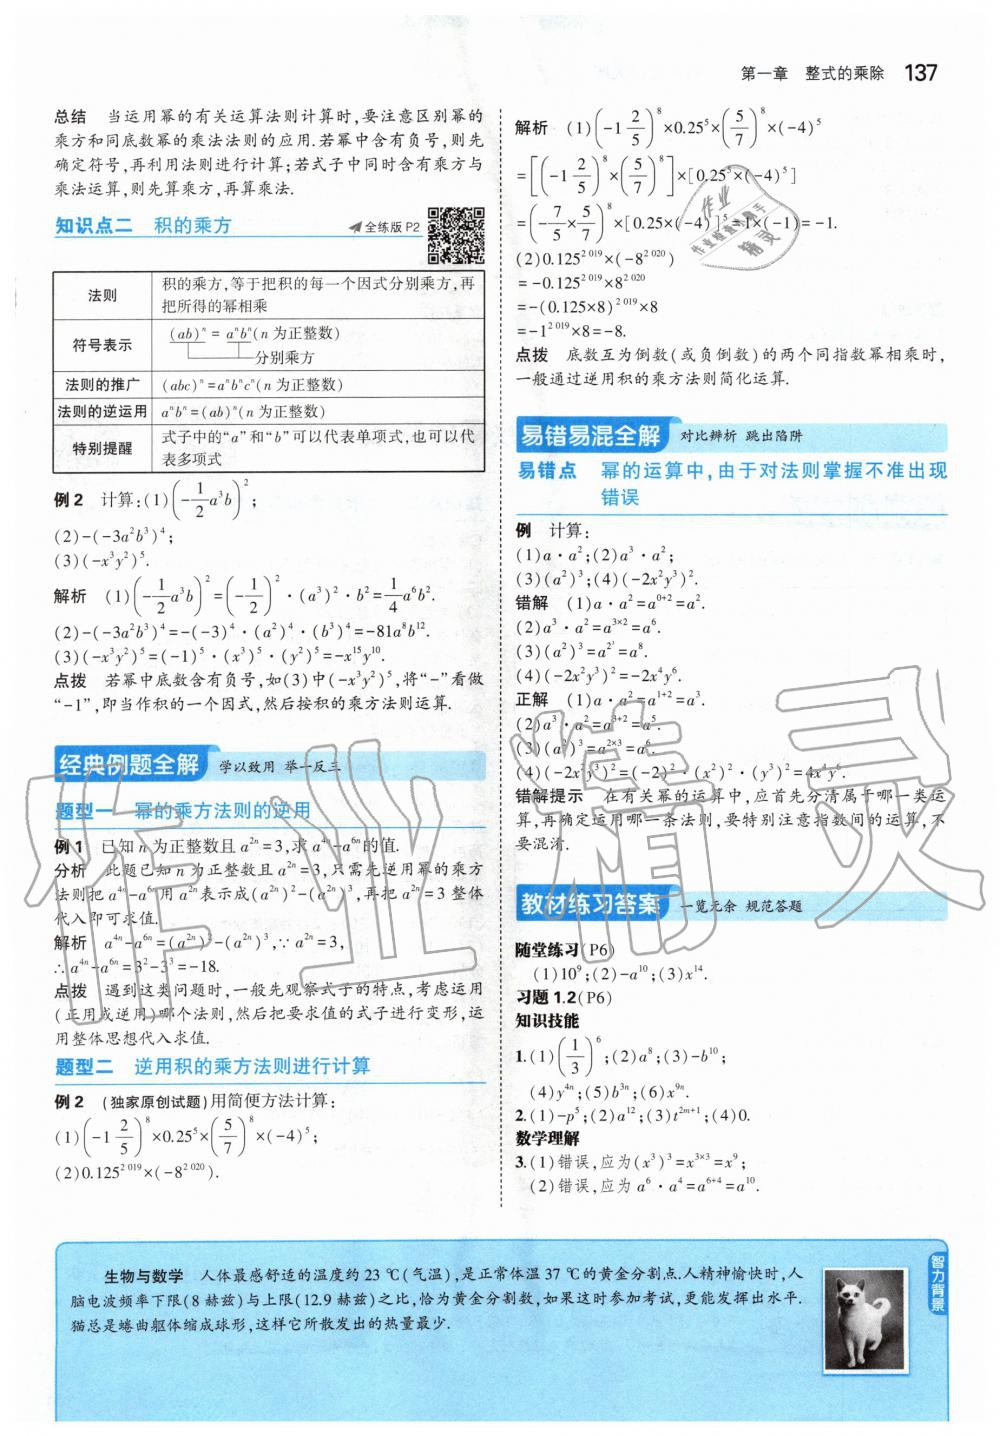 第一章　整式的乘除　137
总结　当运用幂的有关运算法则计算时,要注意区别幂的
乘方和同底数幂的乘法法则的应用.若幂中含有负号,则先
确定符号,再利用法则进行计算;若式子中同时含有乘方与
乘法运算,则先算乘方,再算乘法.
知识点二　积的乘方　全练版 P2
法则　积的乘方,等于把积的每一个因式分别乘方,再
把所得的幂相乘
符号表示　(ab)ⁿ = aⁿbⁿ(n 为正整数)
分别乘方
法则的推广　(abc)ⁿ=aⁿbⁿcⁿ(n 为正整数)
法则的逆运用　aⁿbⁿ=(ab)ⁿ(n 为正整数)
特别提醒　式子中的“a”和“b”可以代表单项式,也可以代
表多项式
例 2　计算:(1)(-1/2 a³b)²;
(2)-(-3a²b³)⁴;
(3)(-x³y²)⁵.
解析　(1)(-1/2 a³b)²=(-1/2)²·(a³)²·b²=1/4 a⁶b².
(2)-(-3a²b³)⁴=-(-3)⁴·(a²)⁴·(b³)⁴=-81a⁸b¹².
(3)(-x³y²)⁵=(-1)⁵·(x³)⁵·(y²)⁵=-x¹⁵y¹⁰.
点拨　若幂中底数含有负号,如(3)中(-x³y²)⁵,将“-”看做
“-1”,即当作积的一个因式,然后按积的乘方法则运算.
经典例题全解　学以致用　举一反三
题型一　幂的乘方法则的逆用
例 1　已知 n 为正整数且 a²ⁿ=3,求 a⁴ⁿ-a⁶ⁿ的值.
分析　此题已知 n 为正整数且 a²ⁿ=3,只需先逆用幂的乘方
法则把 a⁴ⁿ-a⁶ⁿ用 a²ⁿ表示成(a²ⁿ)²-(a²ⁿ)³,再把 a²ⁿ=3 整体
代入即可求值.
解析　a⁴ⁿ-a⁶ⁿ=(a²ⁿ)²-(a²ⁿ)³,∵a²ⁿ=3,
∴a⁴ⁿ-a⁶ⁿ=3²-3³=-18.
点拨　遇到这类问题时,一般先观察式子的特点,考虑运用
(正用或逆用)哪个法则,然后把要求值的式子进行变形,运
用整体思想代入求值.
题型二　逆用积的乘方法则进行计算
例 2　(独家原创试题)用简便方法计算:
(1)(-1 2/5)⁸×0.25⁵×(5/7)⁸×(-4)⁵;
(2)0.125²⁰¹⁹×(-8²⁰²⁰).
解析　(1)(-1 2/5)⁸×0.25⁵×(5/7)⁸×(-4)⁵
=[(-1 2/5)⁸×(5/7)⁸]×[0.25⁵×(-4)⁵]
=(-7/5×5/7)⁸×[0.25×(-4)]⁵=1×(-1)=-1.
(2)0.125²⁰¹⁹×(-8²⁰²⁰)
=-0.125²⁰¹⁹×8²⁰²⁰
=-(0.125×8)²⁰¹⁹×8
=-1²⁰¹⁹×8=-8.
点拨　底数互为倒数(或负倒数)的两个同指数幂相乘时,
一般通过逆用积的乘方法则简化运算.
易错易混全解　对比辨析　跳出陷阱
易错点　幂的运算中,由于对法则掌握不准出现
错误
例　计算:
(1)a·a²;(2)a³·a²;
(3)(a²)³;(4)(-2x²y³)².
错解　(1)a·a²=a⁰⁺²=a².
(2)a³·a²=a³ˣ²=a⁶.
(3)(a²)³=a^(2³)=a⁸.
(4)(-2x²y³)²=-2x⁴y⁶.
正解　(1)a·a²=a¹⁺²=a³.
(2)a³·a²=a³⁺²=a⁵.
(3)(a²)³=a²ˣ³=a⁶.
(4)(-2x²y³)²=(-2)²·(x²)²·(y³)²=4x⁴y⁶.
错解提示　在有关幂的运算中,应首先分清属于哪一类运
算,再确定运用哪一条法则,要特别注意指数间的运算,不
要混淆.
教材练习答案　一览无余　规范答题
随堂练习(P6)
(1)10⁹;(2)-a¹⁰;(3)x¹⁴.
习题 1.2(P6)
知识技能
1.(1)(1/3)⁶;(2)a⁸;(3)-b¹⁰;
(4)y⁴ⁿ;(5)b³ⁿ;(6)x⁹ⁿ.
2.(1)-p⁵;(2)a¹²;(3)t²ᵐ⁺¹;(4)0.
数学理解
3.(1)错误,应为(x³)³=x³ˣ³=x⁹;
(2)错误,应为 a⁶·a⁴=a⁶⁺⁴=a¹⁰.
生物与数学　人体最感舒适的温度约 23 ℃(气温),是正常体温 37 ℃的黄金分割点.人精神愉快时,人
脑电波频率下限(8 赫兹)与上限(12.9 赫兹)之比,恰为黄金分割数,如果这时参加考试,更能发挥出水平.
猫总是蜷曲躯体缩成球形,这样它所散发出的热量最少.
智力背景
作业精灵